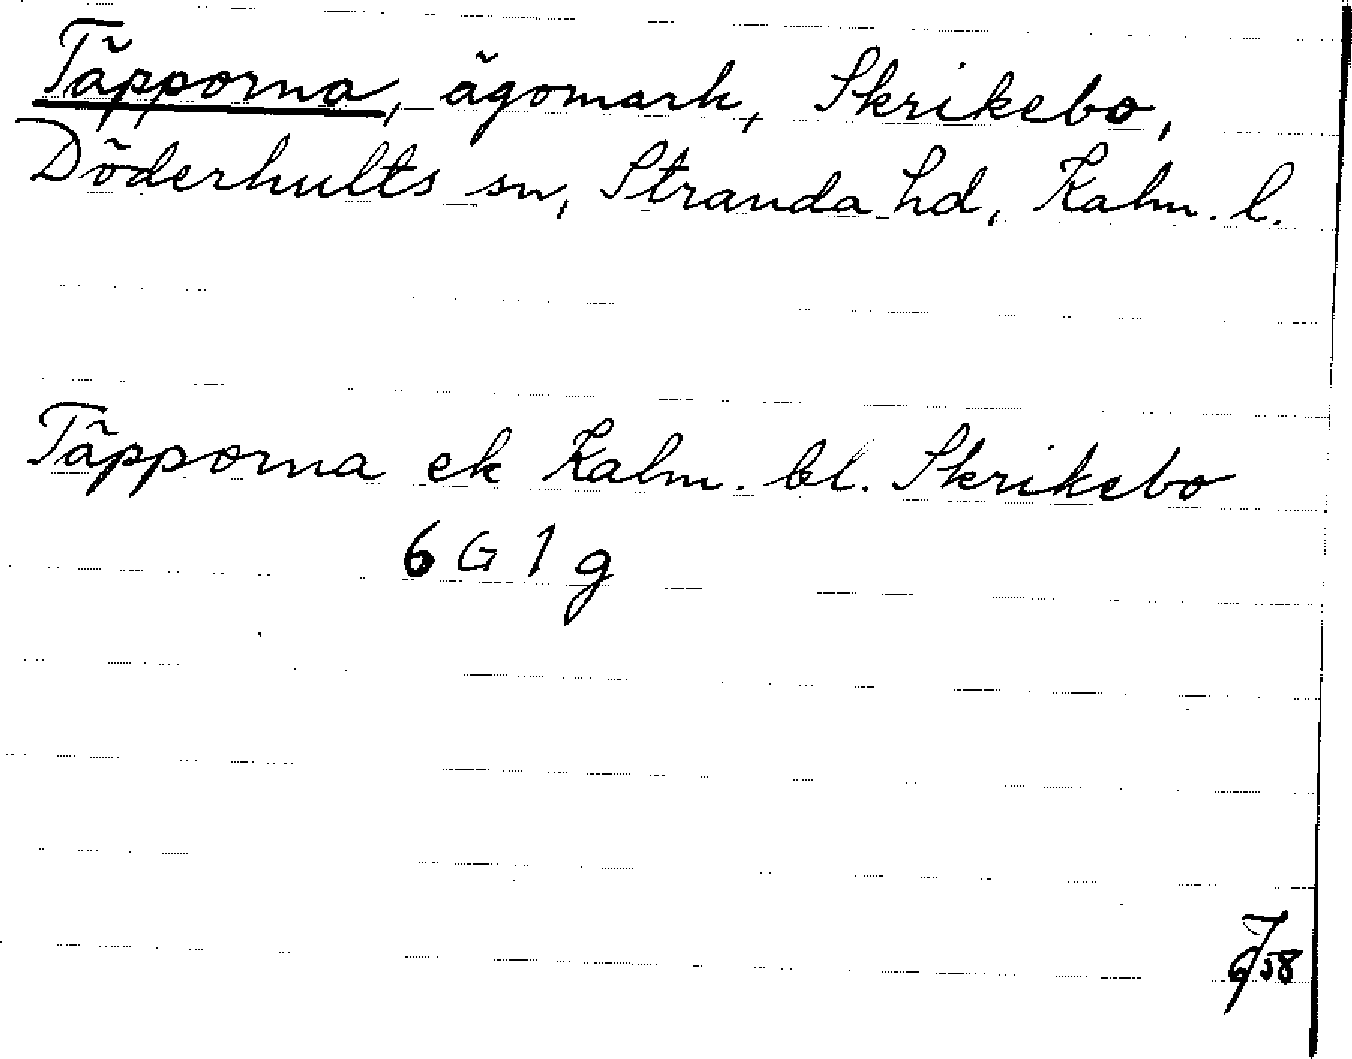 Täpporna, ägomark, Skrikebo,
Döderhults sn, Stranda hd, Kalm. l.
Täpporna ek Kalm. bl. Skrikebo
6 G 1 g
58